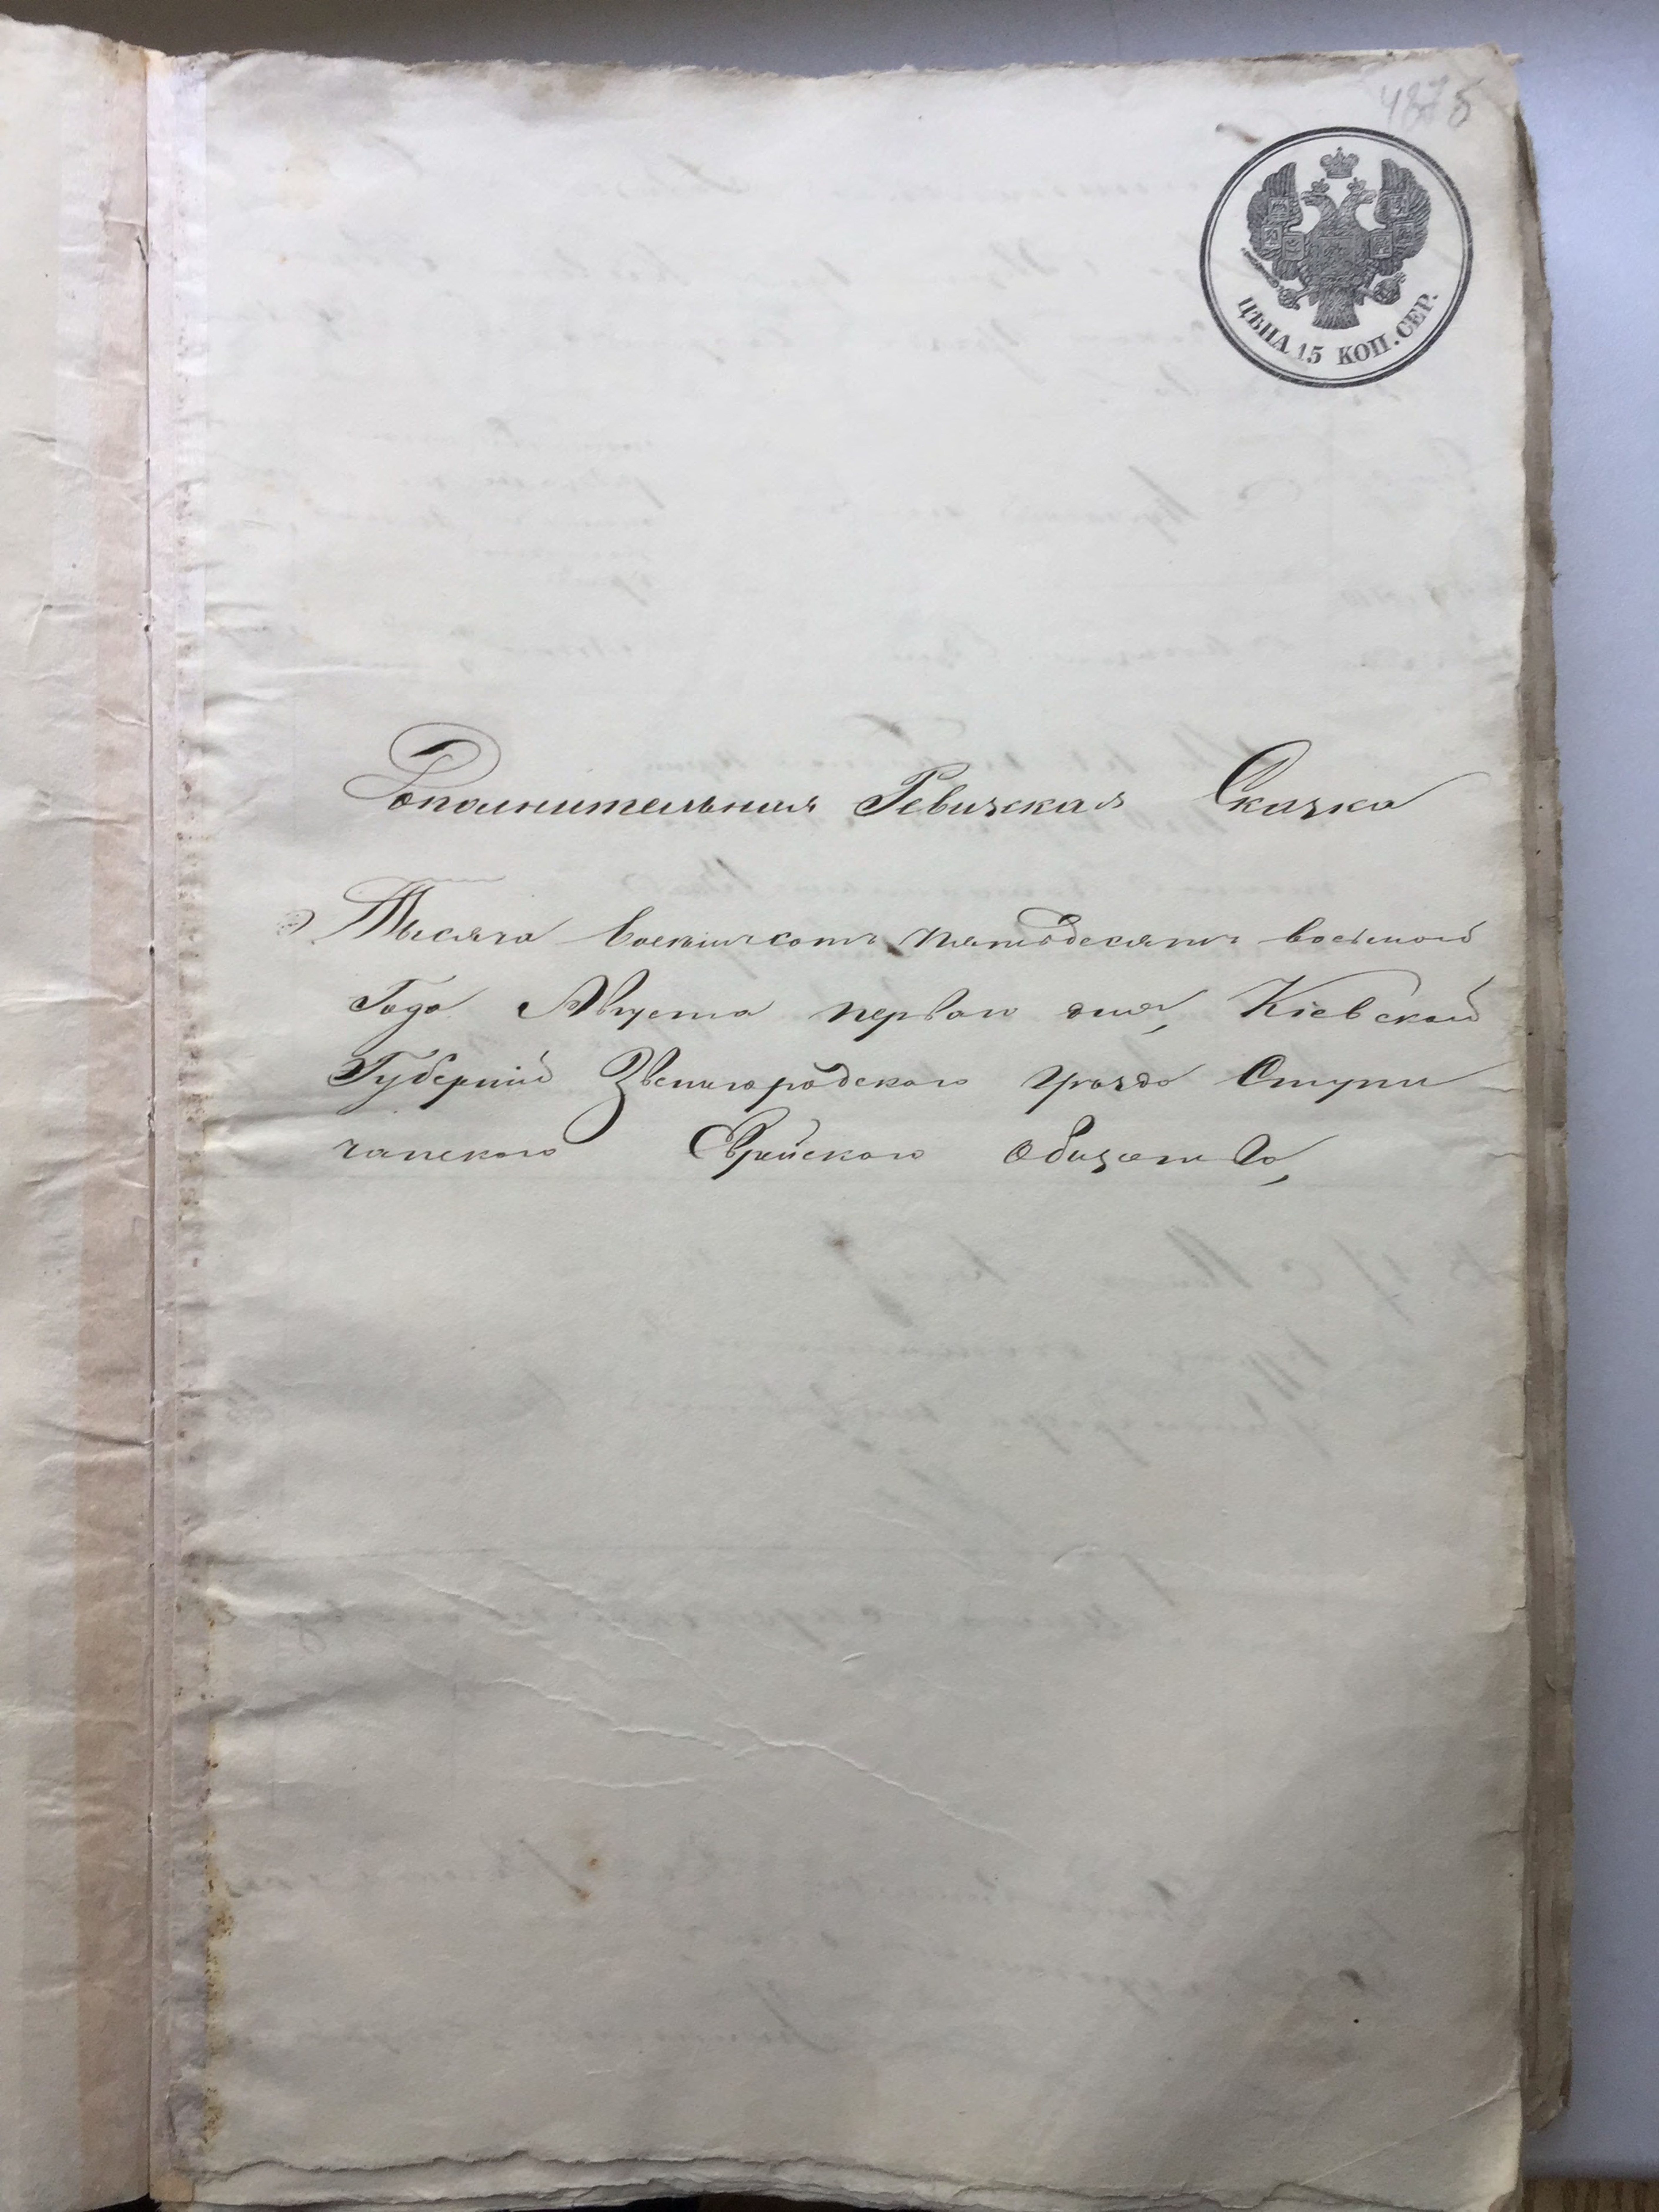 ЦѢНА 15 КОП. СЕР.
Дополнительная Ревизская Сказка
Тысяча восемьсотъ пятьдесятъ восьмой
Года Августа перваго дня, Кіевской
Губерніи Звенигородскаго уѣзда Ступи
чанскаго Еврейскаго Общества,